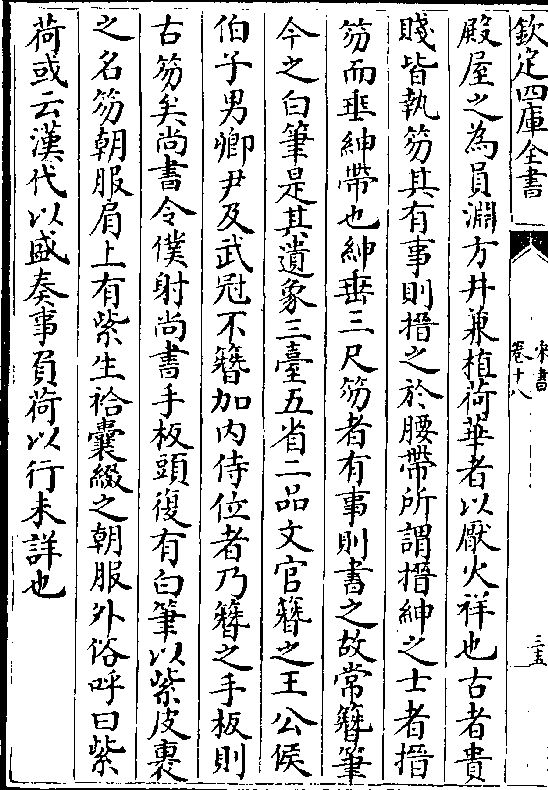 欽定四庫全書
宋書
卷十八
三五
殿屋之為員淵方井兼植荷華者以厭火祥也古者貴
賤皆執笏其有事則搢之於腰帶所謂搢紳之士者搢
笏而垂紳帶也紳垂三尺笏者有事則書之故常簪筆
今之白筆是其遺象三臺五省二品文官簪之王公侯
伯子男卿尹及武冠不簪加內侍位者乃簪之手板則
古笏矣尚書令僕射尚書手板頭復有白筆以紫皮裹
之名笏朝服肩上有紫生袷囊綴之朝服外俗呼曰紫
荷或云漢代以盛奏事負荷以行未詳也